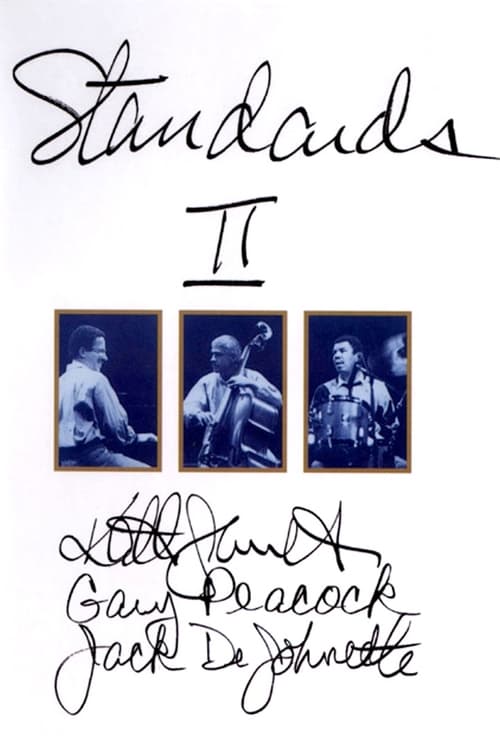 Standards
II
Keith Jarrett
Gary Peacock
Jack DeJohnette